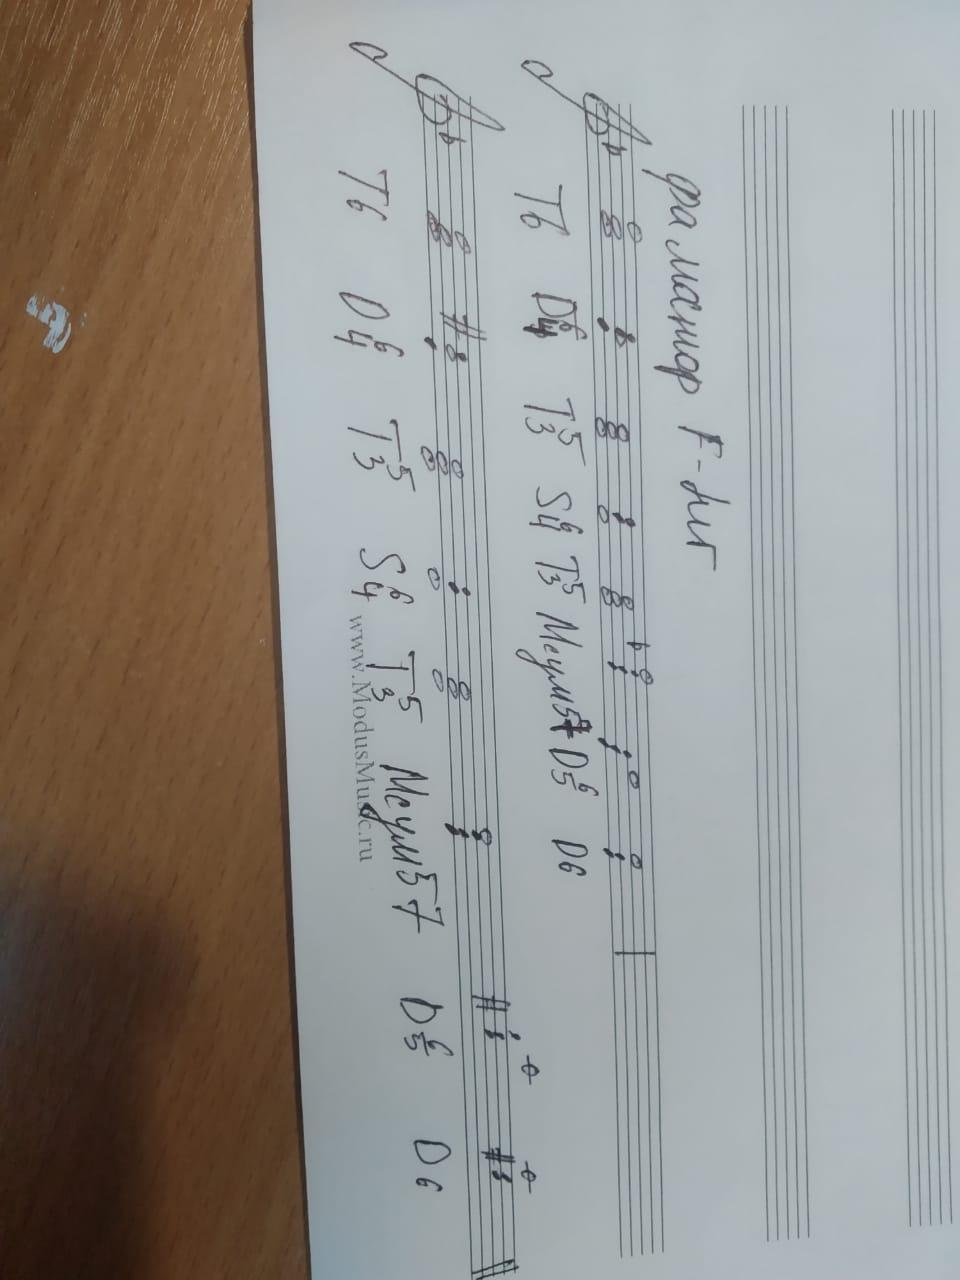 фа мажор F-dur
T6 D64 T53 S64 T53 Мумум57 D65 D6
T6 D64 T53 S64 T53 Мумум57 D65 D6
www.ModusMusic.ru